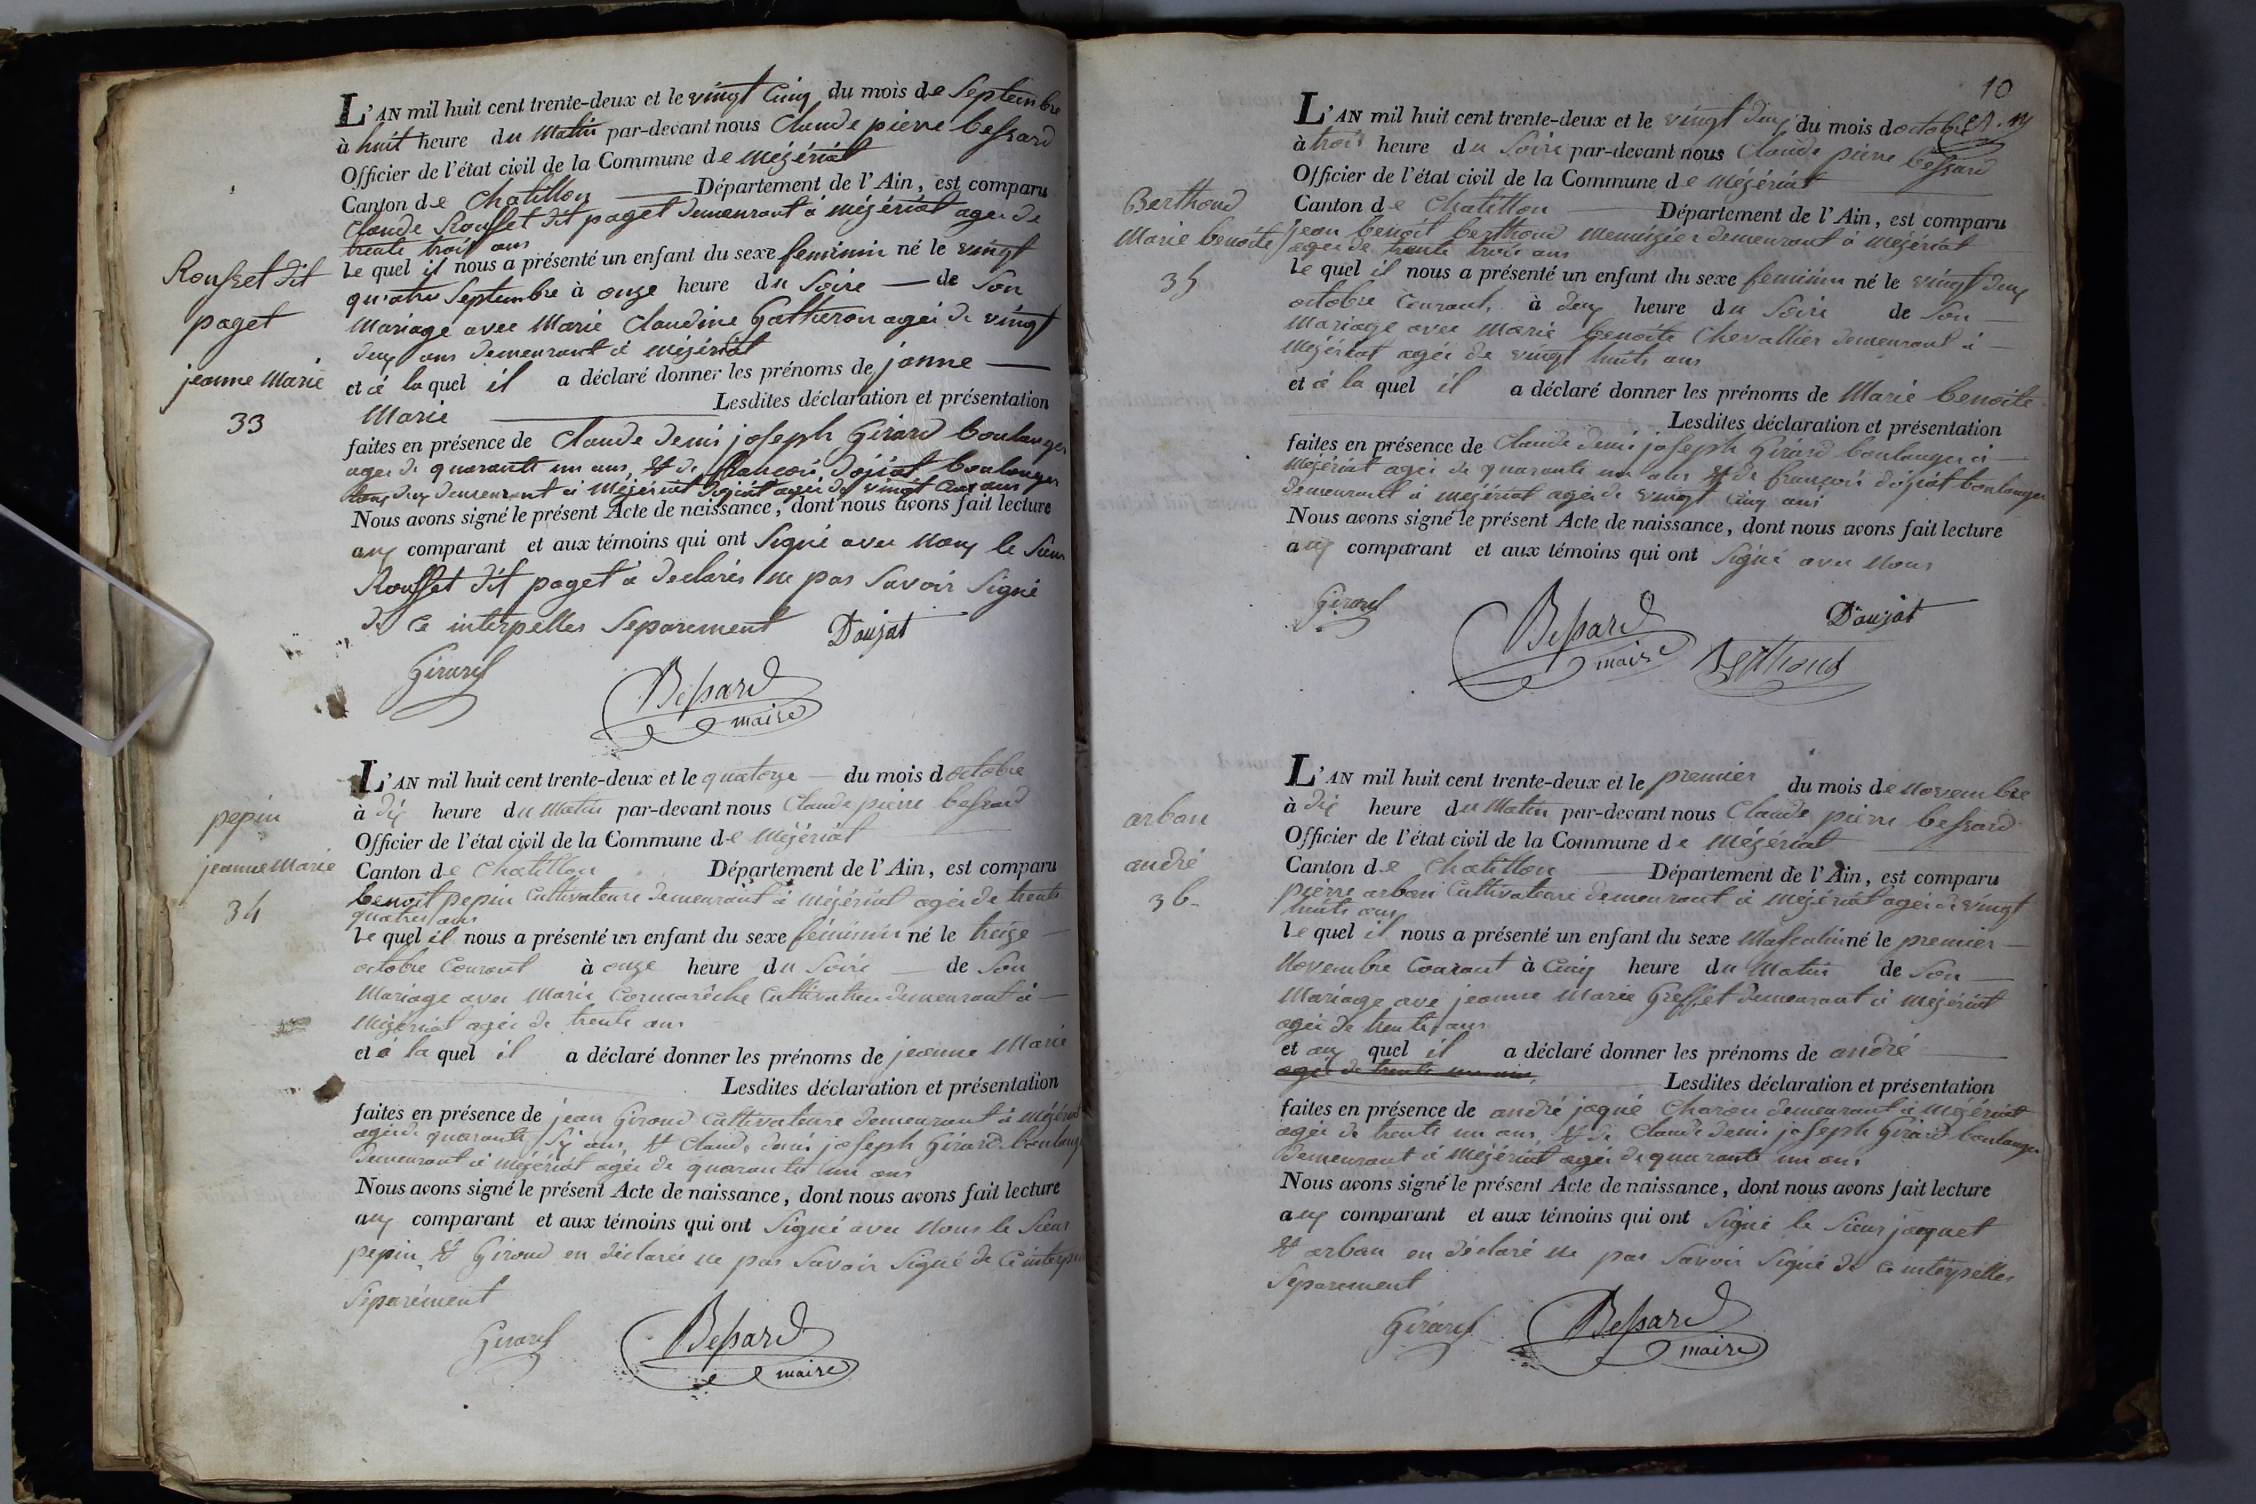 L'AN mil huit cent trente-deux et le vingt cinq du mois de Septembre
à huit heure du Matin par-devant nous Claude pierre bessard
Officier de l'état civil de la Commune de Mézériat
Canton de Chatillon Département de l'Ain, est comparu
Claude Rousset dit paget demeurant à Mézériat agée de
trente trois ans
Rousset dit
paget
jeanne Marie
33
le quel il nous a présenté un enfant du sexe feminin né le vingt
quatre Septembre à onze heure du Soire de Son
Mariage avec Marie Claudine Gatheron agée de vingt
deux ans demeurant à Mézériat
et à la quel il a déclaré donner les prénoms de janne
Marie Lesdites déclaration et présentation
faites en présence de Claude denis joseph Girard boulanger
agée de quarante un ans, & de françois dojat boulanger
demeurant à Mézériat agée de vingt cinq ans
Nous avons signé le présent Acte de naissance, dont nous avons fait lecture
aux comparant et aux témoins qui ont Signé avec Nous le Sieur
Rousset dit paget à declarés ne pas Savoir Signé
de ce interpelles Séparement
Daujat
Girard
Bessard
maire
pepin
jeanne Marie
34
L'AN mil huit cent trente-deux et le quatorze du mois doctobre
à dix heure du Matin par-devant nous Claude pierre bessard
Officier de l'état civil de la Commune de Mézériat
Canton de Chatillon Département de l'Ain, est comparu
benoit pepin Cultivateure demeurant à Mézériat agée de trente
quatres ans
le quel il nous a présenté un enfant du sexe féminin né le treize
octobre Courant à onze heure du Soire de Son
Mariage avec Marie Cormarêche Cultivatrice demeurant à
Mézériat agée de trente ans
et à la quel il a déclaré donner les prénoms de jeanne Marie
Lesdites déclaration et présentation
faites en présence de jean Giroud Cultivateure demeurant à Mézériat
agée de quarante six ans, & Claude denis joseph Girard boulanger
demeurant à Mézériat agée de quarante un ans
Nous avons signé le présent Acte de naissance, dont nous avons fait lecture
aux comparant et aux témoins qui ont Signé avec Nous le Sieur
pepin & Giroud en déclarée ne pas Savoir Signé de ce
Séparément
Girard
Bessard
maire
10
L'AN mil huit cent trente-deux et le vingt deux du mois doctobre
à trois heure du Soire par-devant nous Claude pierre bessard
Officier de l'état civil de la Commune de Mézériat
Canton de Chatillon Département de l'Ain, est comparu
Berthoud
Marie benoite
35
jean benoit berthoud Menuizier demeurant à Mézériat
agée de trente trois ans
le quel il nous a présenté un enfant du sexe féminin né le vingt deux
octobre Courant, à deux heure du Soire de Son
Mariage avec Marie benoite Chevallier demeurant à
Mézériat agée de vingt huits ans
et à la quel il a déclaré donner les prénoms de Marie benoite
Lesdites déclaration et présentation
faites en présence de Claude denis joseph Girard boulanger à
Mézériat agée de quarante un ans & de françois dojat boulanger
demeurant à Mézériat agée de vingt cinq ans
Nous avons signé le présent Acte de naissance, dont nous avons fait lecture
aux comparant et aux témoins qui ont Signé avec Nous
Girard
Bessard
maire
Daujat
Berthoud
arban
andré
36
L'AN mil huit cent trente-deux et le premier du mois de Novembre
à dix heure du Matin par-devant nous Claude pierre bessard
Officier de l'état civil de la Commune de Mézériat
Canton de Chatillon Département de l'Ain, est comparu
pierre arban Cultivateure demeurant à Mézériat agée de vingt
huits ans
le quel il nous a présenté un enfant du sexe Masculin né le premier
Novembre Courant à Cinq heure du Matin de Son
Mariage ave jeanne Marie Greffet demeurant à Mézériat
agée de trente ans
et aux quel il a déclaré donner les prénoms de andré
Lesdites déclaration et présentation
faites en présence de andré jaqué Charon demeurant à Mézériat
agée de trente un ans, & de Claude denis joseph Girard boulanger
demeurant à Mézériat agée de quarante un ans
Nous avons signé le présent Acte de naissance, dont nous avons fait lecture
aux comparant et aux témoins qui ont Signé le Sieur jacquet
& arban en déclaré ne pas Savoir Signé de ce interpelles
Séparement
Girard
Bessard
maire